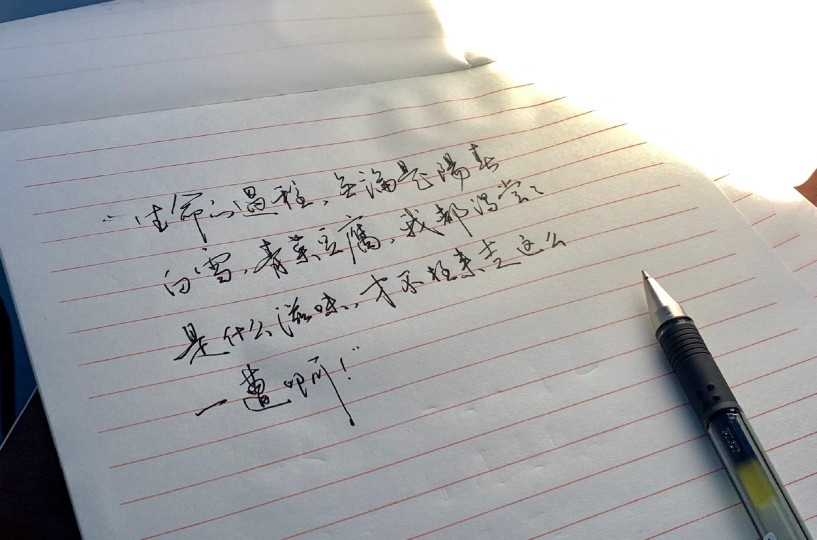 “生命的過程，無論是陽春
白雪，青菜豆腐，我都得嘗々
是什么滋味，才不枉来走这么
一遭啊！”